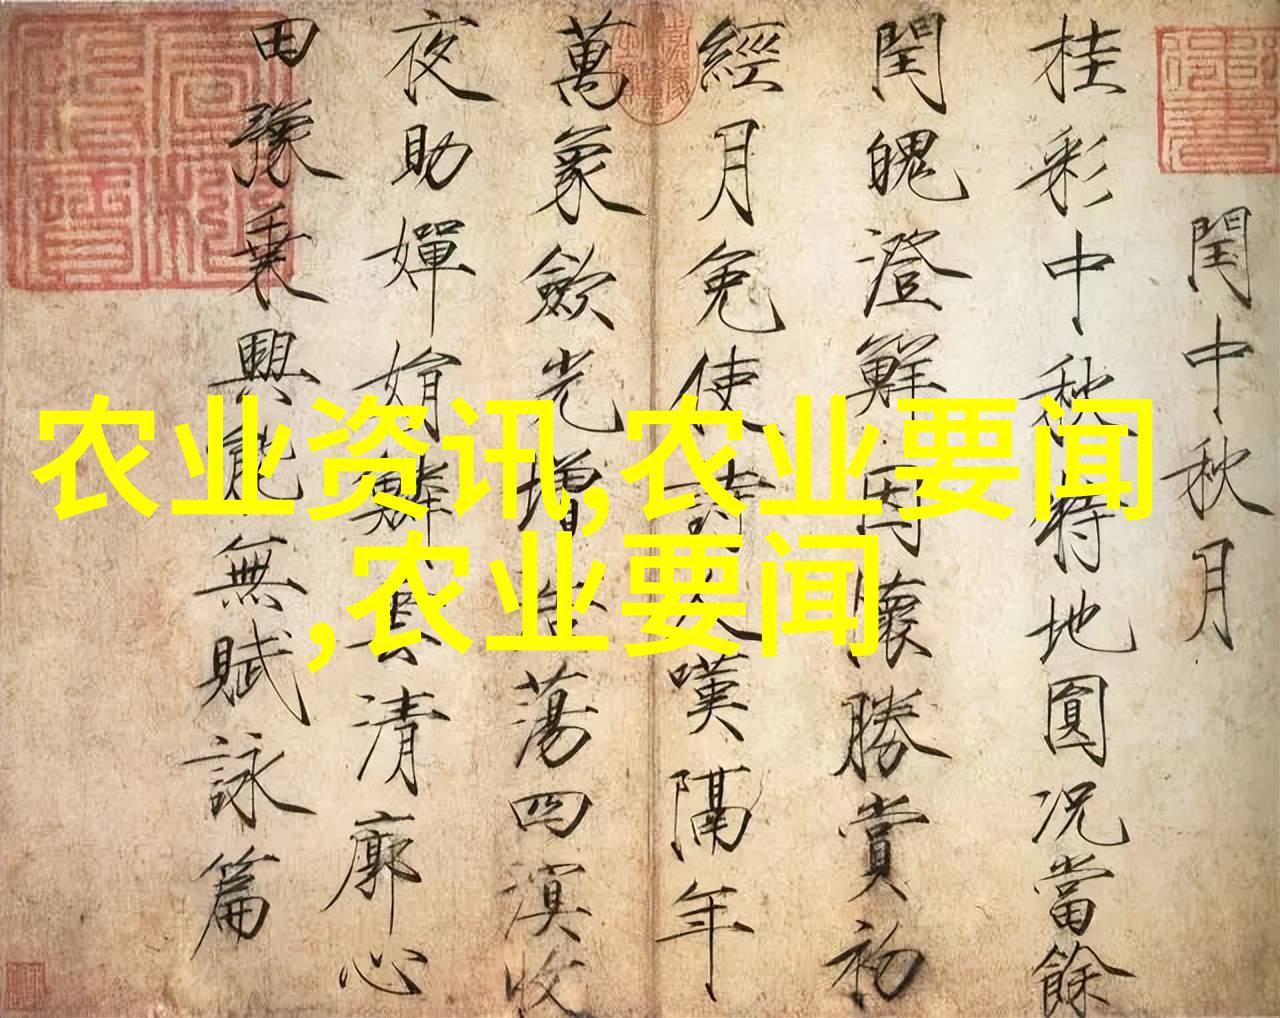 閏中秋月
桂彩中秋特地圓況當餘
閏魄澄鮮因懷勝賞初
經月免使詩人嘆隔年
萬象歛光增浩蕩四溟收
夜助嬋娟鱗雲清廓心
田豫乗興能無賦詠篇
农业资讯,农业要闻
,农业要闻